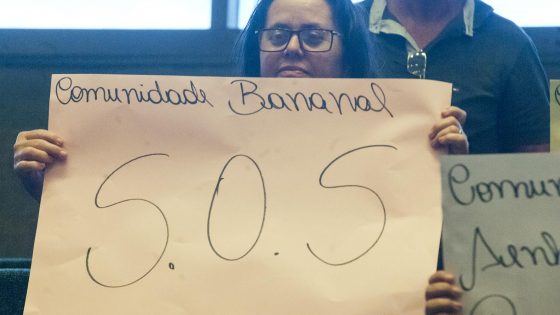 Comunidade Bananal
S.O.S
Comun